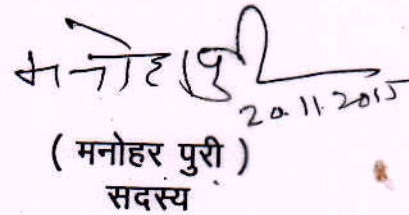 मनोहर पुरी
20.11.2015
( मनोहर पुरी )
सदस्य